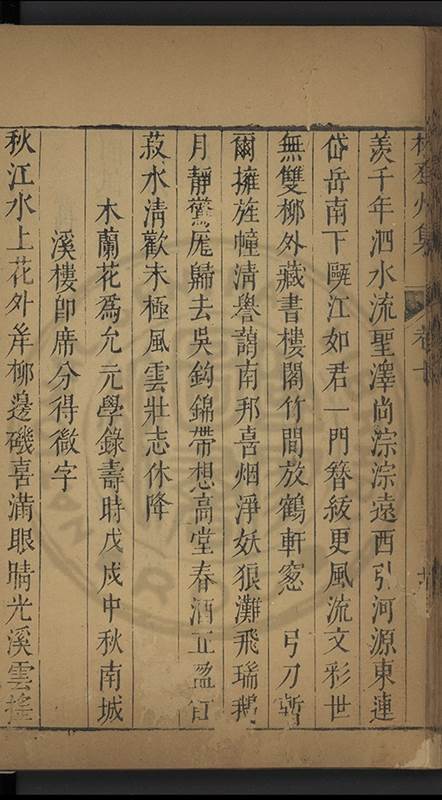 羨千年泗水流聖澤尚淙淙遠西引河源東連
岱岳南下甌江如君一門簪紱更風流文彩世
無雙柳外藏書樓閣竹間放鶴軒窓 弓刀暫
爾擁旌幢清譽藹南邦喜烟淨妖狼灘飛瑞
月靜驚尨歸去吳鈎錦帶想高堂春酒正盈缸
菽水清歡未極風雲壯志休降
木蘭花為允元學錄壽時戊戌中秋南城
溪樓即席分得微字
秋江水上花外岸柳邊磯喜滿眼晴光溪雲搖